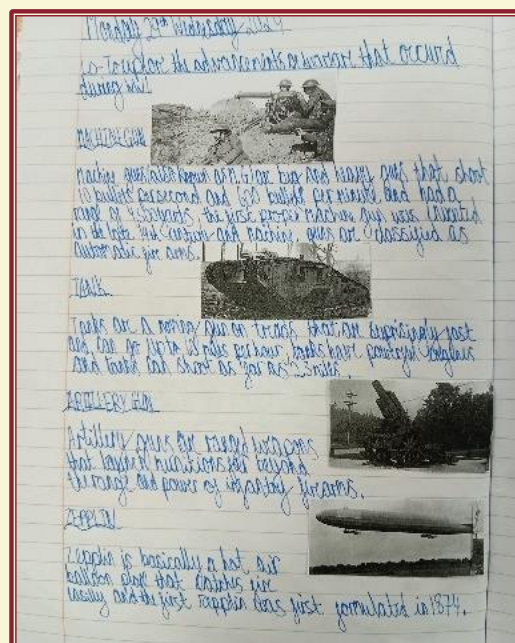 Monday 29th Wednesday 2024
Lo-To explor the advancements in warfare that occurd
during WW1
MACHINE GUN
Machine guns also known as M.G are big and heavy guns that shoot
10 bullets per second and 600 bullets per minute and had a
range of yards, the first proper machine gun were invented
in the late 19th century and machine guns are classified as
automatic fire arms.
TANK
Tanks are a moving gun on tracks that are surprisingly fast
and can go up to miles per hour, tanks have powerful
and tanks can shoot as far as 2.5 miles.
ARTILLERY GUN
Artillery guns are ranged weapons
that launch munitions far beyond
the range and power of infantry firearms.
ZEPPLIN
Zepplin is basically a hot air
balloon that catches fire
easily and the first zepplin was first formulated in 1874.